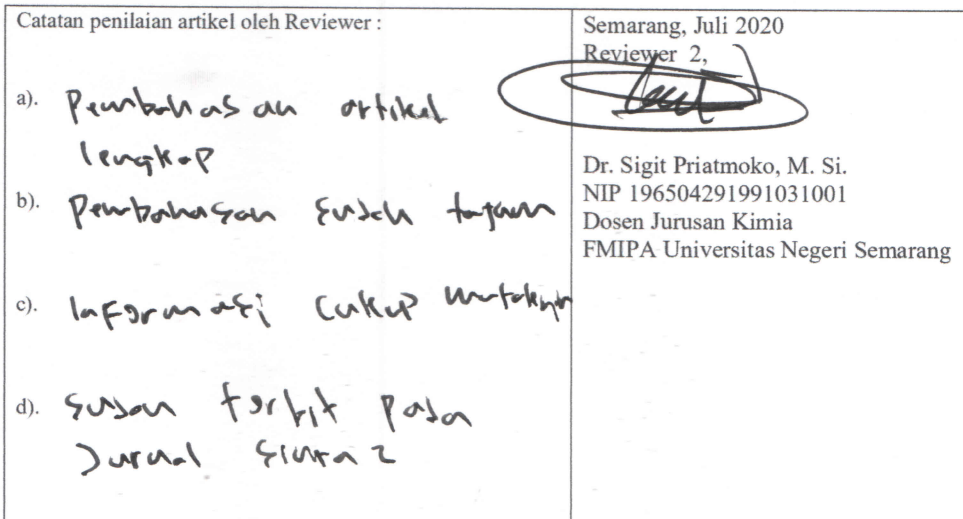 Catatan penilaian artikel oleh Reviewer :
a). Pembahasan artikel
lengkap
b). Pembahasan sudah tajam
c). Informasi cukup mutakhir
d). Sudah terbit pada
Jurnal Sinta 2
Semarang, Juli 2020
Reviewer 2,
Dr. Sigit Priatmoko, M. Si.
NIP 196504291991031001
Dosen Jurusan Kimia
FMIPA Universitas Negeri Semarang